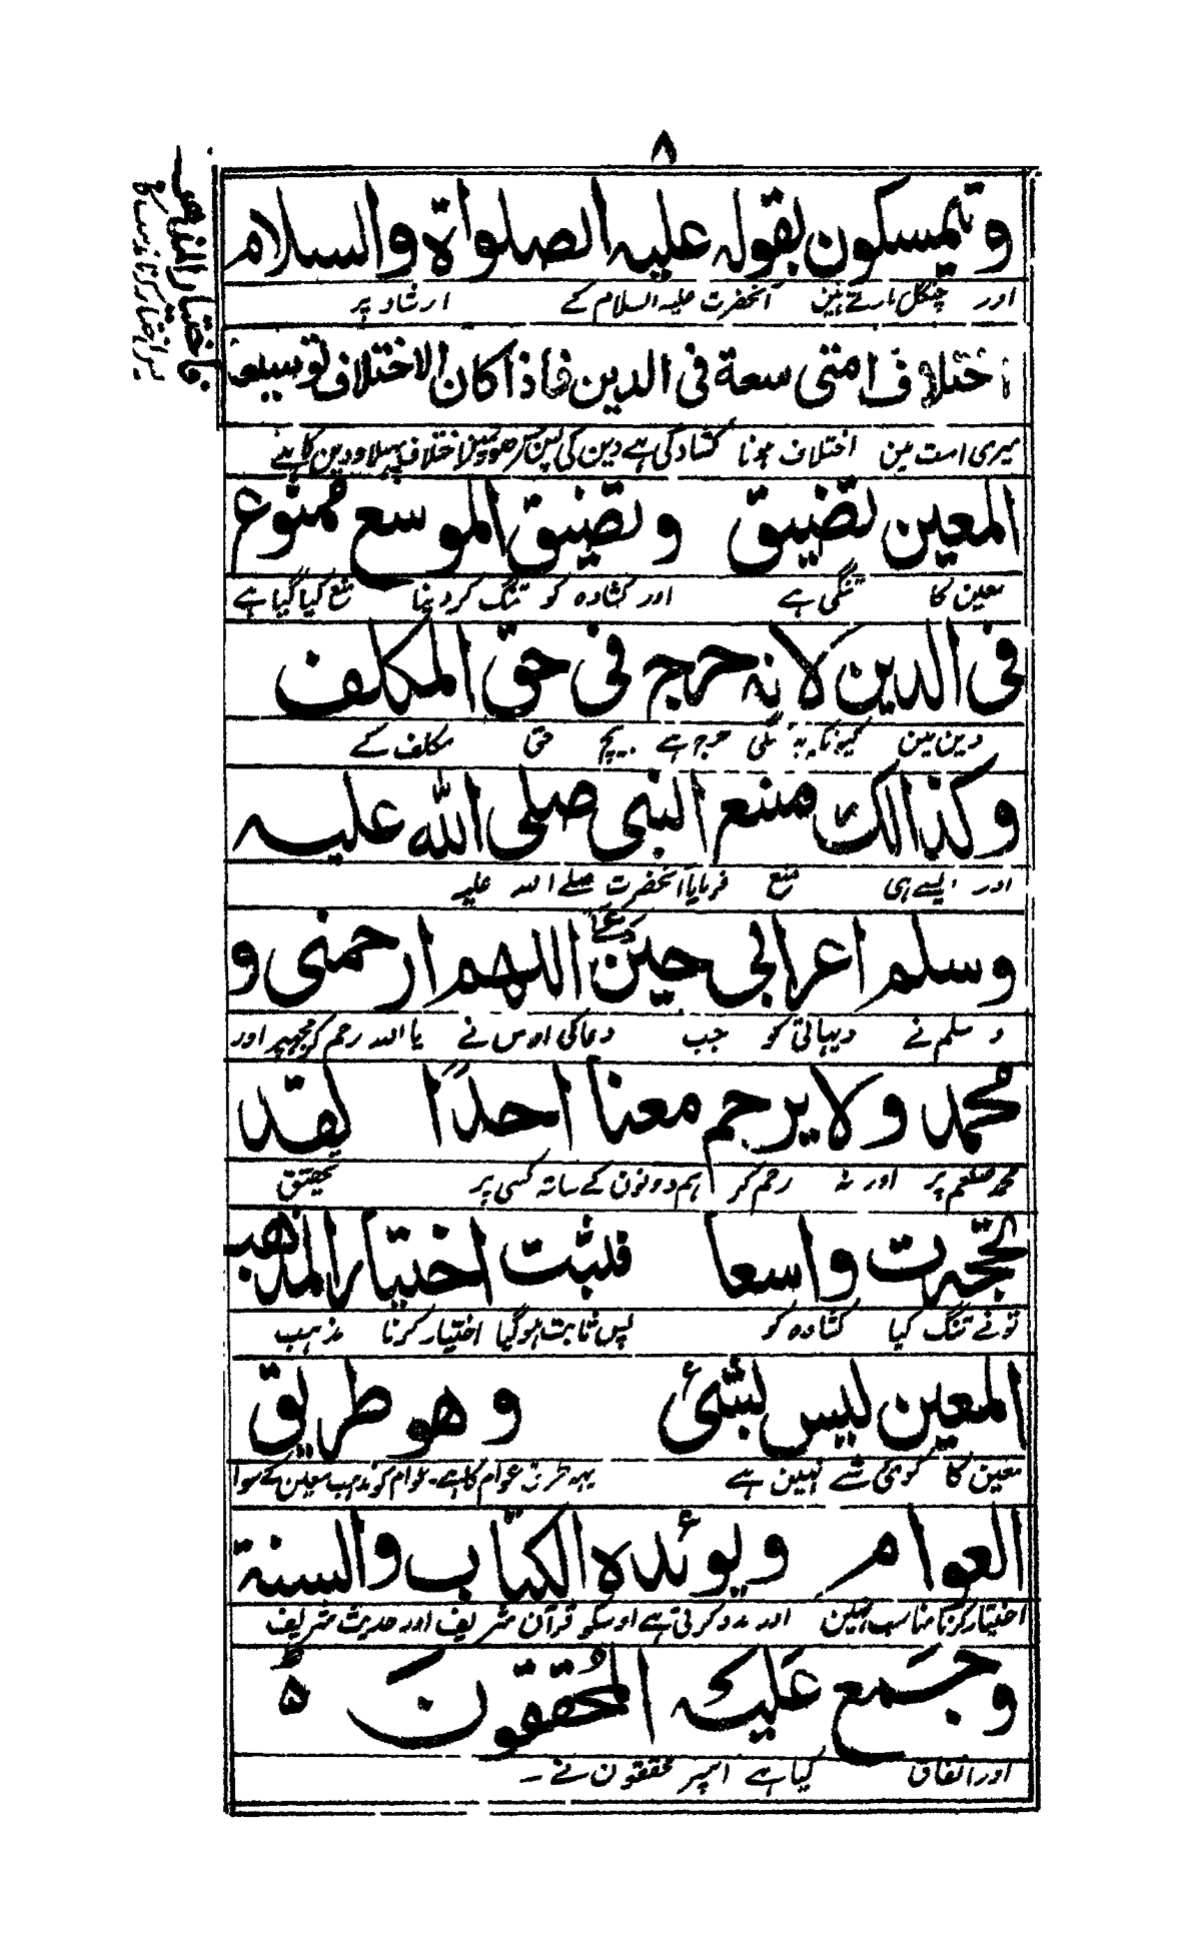 ۸
وتمسكون بقوله عليه الصلواة والسلام
اور چنگل مارتے ہین آنحضرت علیہ السلام کے ارشاد پر
اختلاف امتى سعة فى الدين فاذا كان الاختلاف توسيعا
میری امت مین اختلاف ہونا کشادگی ہے دین کی پس جس صورتمین اختلاف پہیلاو دین کا ہے
فاختيار المذهب
پس اختیار کرنا مذہب کا
المعين تضييق وتضيق الموسع ممنوع
معین کا تنگی ہے اور کشادہ کو تنگ کر دینا منع کیا گیا ہے
فى الدين لانه حرج فى حق المكلف
دین مین کیونکہ یہ تنگی حرج ہے بیچ حق مکلف کے
وكذالك منع النبى صلى الله عليه
اور ایسے ہی منع فرمایا آنحضرت صلے اللہ علیہ
وسلم اعرابى حين دعا اللهم ارحمنى و
و سلم نے دیہاتی کو جب دعا کی اوس نے یا اللہ رحم کر مجہپر اور
محمد ولا يرحم معنا احدًا لقد
محمد صلعم پر اور نہ رحم کر ہم دونون کے ساتہ کسی پر تحقیق
تحجرت واسعا فثبت اختيار المذهب
تونے تنگ کیا کشادہ کو پس ثابت ہو گیا اختیار کرنا مذہب
المعين ليس بشئ وهو طريق
معین کا کوئی شے نہین ہے یہہ طریق عوام کا ہے۔ عوام کو مذہب معین کے سوا
العوام ويوئده الكتاب والسنة
اختیار کرنا مناسب نہین اور مدد کرتی ہے اوسکو قرآن شریف اور حدیث شریف
وجمع عليه المحققون ۵
اور اتفاق کیا ہے اسپر محققون نے ۔